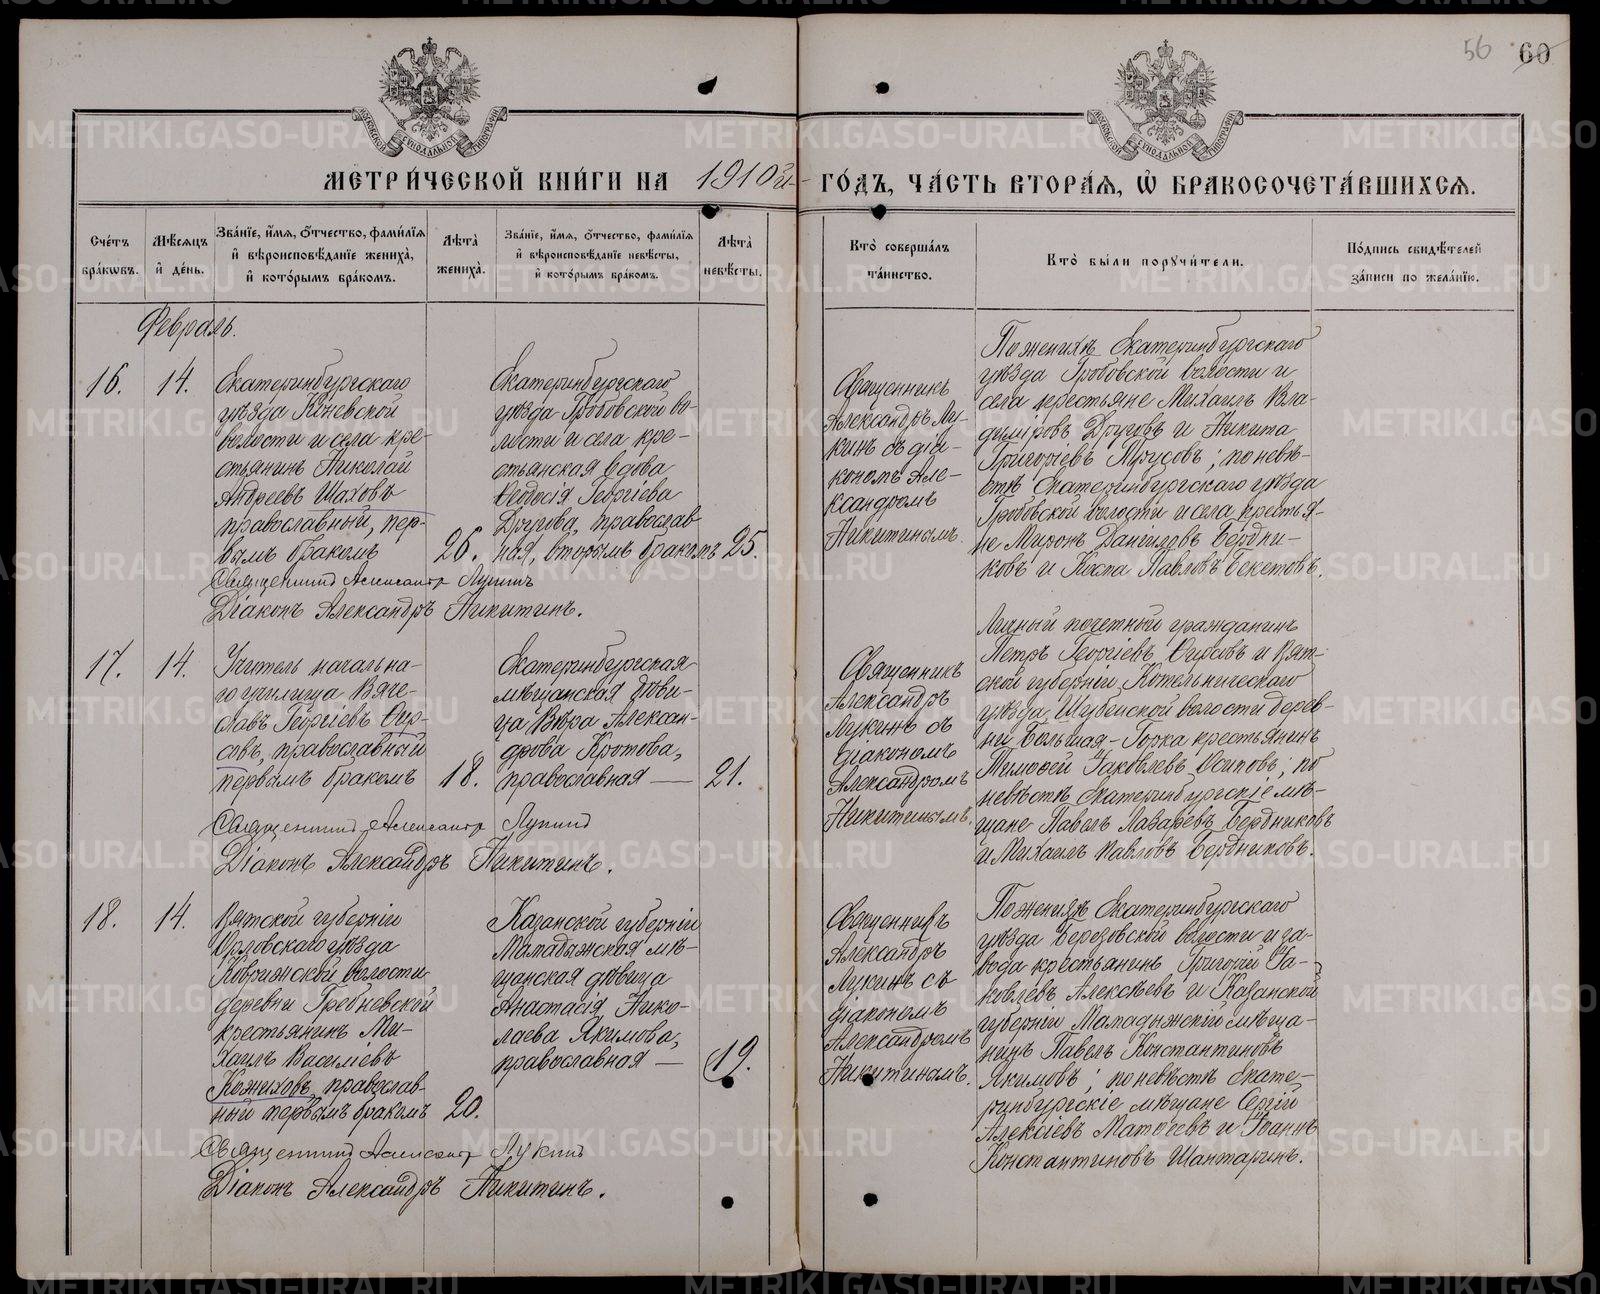 56 60
МЕТРИ́ЧЕСКОЙ КНИ́ГИ НА 1910й ГО́ДЪ, ЧА́СТЬ ВТОРА́Ѧ, Ѽ БРАКОСОЧЕТА́ВШИХСѦ.
Сче́тъ бра́кѡвъ.
Мѣ́сѧцъ и҆ де́нь.
Зва́нїе, и҆́мѧ, ѻ҆́тчество, фами́лїѧ и҆ вѣроисповѣ́данїе жениха̀, и҆ кото́рымъ бра́комъ.
Лѣта̀ жениха̀.
Зва́нїе, и҆́мѧ, ѻ҆́тчество, фами́лїѧ и҆ вѣроисповѣ́данїе невѣ́сты, и҆ кото́рымъ бра́комъ.
Лѣта̀ невѣ́сты.
Кто̀ соверша́лъ та́инство.
Кто̀ бы́ли поручи́тели.
По́дпись свидѣ́телей за́писи по жела́нїю.
Февраль.
16.
14.
Екатеринбургскаго
уѣзда Коневской
волости и села кре-
стьянинъ Николай
Андреевъ Шаховъ
православный, пер-
вымъ бракомъ
26.
Екатеринбургскаго
уѣзда Гробовской во-
лости и села кре-
стьянская вдова
Ѳеодосія Георгіева
Другова, православ-
ная, вторымъ бракомъ
25.
Священникъ
Александръ Лу-
кинъ съ діа-
кономъ Але-
ксандромъ
Никитинымъ.
По женихѣ Екатеринбургскаго
уѣзда Гробовской волости и
села крестьяне Михаилъ Вла-
диміровъ Друговъ и Никита
Григорьевъ Трусовъ; по невѣ-
стѣ Екатеринбургскаго уѣзда
Гробовской волости и села крестья-
не Миронъ Даниловъ Бердни-
ковъ и Павловъ Бекетовъ.
Священникъ Александръ Лукинъ
Діаконъ Александръ Никитинъ.
17.
14.
Учитель начальна-
го училища Вяче-
славъ Георгіевъ
православный
первымъ бракомъ
18.
Екатеринбургская
мѣщанская дѣви-
ца Вѣра Алексан-
дрова Кротова,
православная —
21.
Священникъ
Александръ
Лукинъ съ
діакономъ
Александромъ
Никитинымъ.
Личный почетный гражданинъ
Петръ Георгіевъ и Вят-
ской губерніи Котельническаго
уѣзда, волости дерев-
ни Большая-Горка крестьянинъ
Тимоѳей Іаковлевъ Осиповъ; по
невѣстѣ Екатеринбургскіе мѣ-
щане Павелъ Лазаревъ Бердниковъ
и Михаилъ Павловъ Бердниковъ.
Священникъ Александръ Лукинъ
Діаконъ Александръ Никитинъ.
18.
14.
Вятской губерніи
Орловскаго уѣзда
волости
деревни Гребневской
крестьянинъ Ми-
хаилъ Васильевъ
Кожиховъ, православ-
ный первымъ бракомъ
20.
Казанской губерніи
Мамадыжская мѣ-
щанская дѣвица
Анастасія Нико-
лаева Якимова,
православная —
19.
Священникъ
Александръ
Лукинъ съ
діакономъ
Александромъ
Никитинымъ.
По женихѣ Екатеринбургскаго
уѣзда Березовской волости и за-
вода крестьянинъ Григорій Іа-
ковлевъ Алексѣевъ и Казанской
губерніи Мамадыжскій мѣща-
нинъ Павелъ Константиновъ
Якимовъ; по невѣстѣ Екате-
ринбургскіе мѣщане Сергій
Алексіевъ Матвеевъ и Іоаннъ
Константиновъ Шантаринъ.
Священникъ Александръ Лукинъ
Діаконъ Александръ Никитинъ.
METRIKI.GASO-URAL.RU